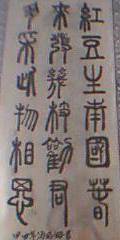 紅豆生南國春
來發幾枝勸君
采此物相思